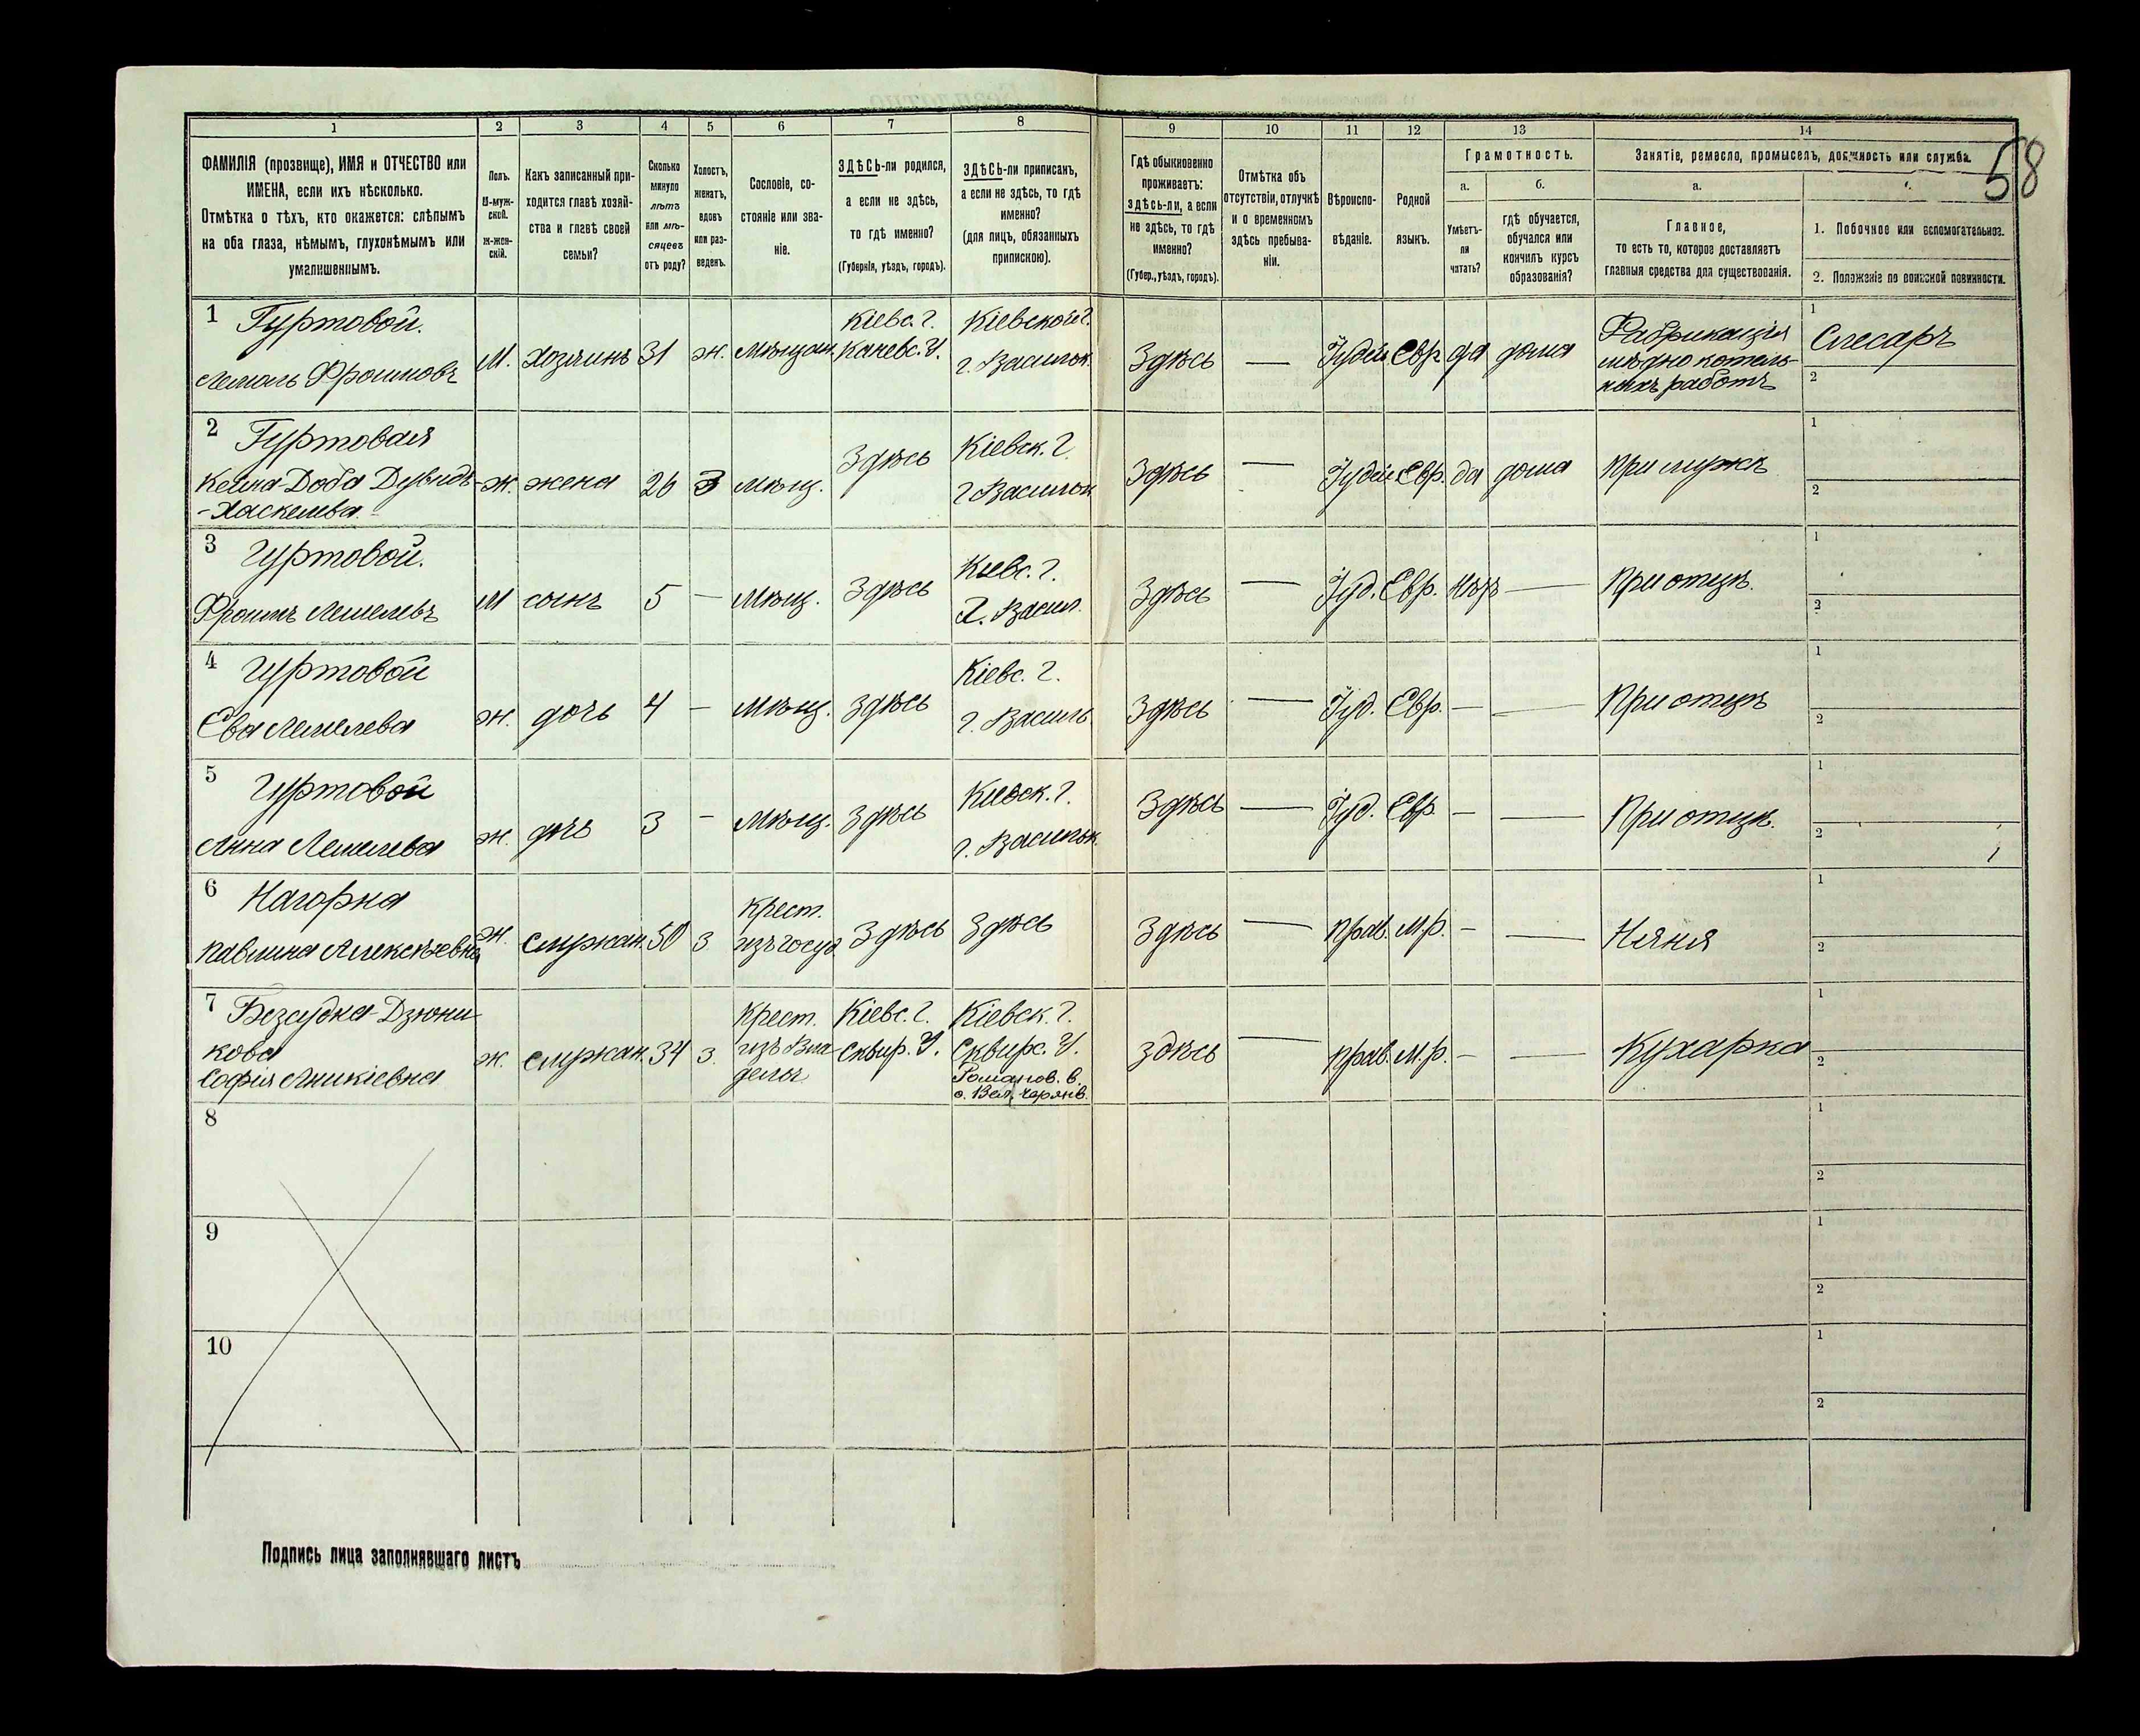 1 2 3 4 5 6 7 8 9 10 11 12 13 14
58
ФАМИЛІЯ (прозвище), ИМЯ и ОТЧЕСТВО или
ИМЕНА, если ихъ нѣсколько.
Отмѣтка о тѣхъ, кто окажется: слѣпымъ
на оба глаза, нѣмымъ, глухонѣмымъ или
умалишеннымъ.
Полъ.
М-муж-
ской.
ж-жен-
скій.
Какъ записанный при-
ходится главѣ хозяй-
ства и главѣ своей
семьи?
Сколько
минуло
лѣтъ
или мѣ-
сяцевъ
отъ роду?
Холостъ,
женатъ,
вдовъ
или раз-
веденъ.
Сословіе, со-
стояніе или зва-
ніе.
ЗДѢСЬ-ли родился,
а если не здѣсь,
то гдѣ именно?
(Губернія, уѣздъ, городъ).
ЗДѢСЬ-ли приписанъ,
а если не здѣсь, то гдѣ
именно?
(для лицъ, обязанныхъ
припискою).
Гдѣ обыкновенно
проживаетъ:
здѣсь-ли, а если
не здѣсь, то гдѣ
именно?
(Губер., уѣздъ, городъ).
Отмѣтка объ
отсутствіи, отлучкѣ
и о временномъ
здѣсь пребыва-
ніи.
Вѣроиспо-
вѣданіе.
Родной
языкъ.
Грамотность.
а. б.
Умѣетъ-
ли
читать?
гдѣ обучается,
обучался или
кончилъ курсъ
образованія?
Занятіе, ремесло, промыселъ, должность или служба.
а.
Главное,
то есть то, которое доставляетъ
главныя средства для существованія.
1. Побочное или вспомогательное.
2. Положеніе по воинской повинности.
1 Гуртовой.
Лемель Фроимовъ
М. Хозяинъ 31 ж. мѣщан.
Кіевс. г.
Каневс. У.
Кіевской г.
г. Васильк.
Здѣсь — Іудей Евр да дома
Фабрикація
мѣдно котель-
ныхъ работъ
1 Слесарь
2
2 Гуртовая
Кейла-Доба Дувидъ-
-Хаскелева.
ж. жена 26 З мѣщ. Здѣсь
Кіевск. г.
г Васильк
Здѣсь — Іудей Евр. да дома при мужѣ
1
2
3 Гуртовой.
Фроимъ Лемелевъ
М сынъ 5 — Мѣщ. Здѣсь
Кіевс. г.
г. Васил.
Здѣсь — Іуд. Евр. нѣтъ — При отцѣ.
1
2
4 Гуртовой
Ева Лемелева
ж. дочь 4 — Мѣщ. Здѣсь
Кіевс. г.
г. Василь
Здѣсь — Іуд. Евр. — — При отцѣ
1
2
5 Гуртовой
Анна Лемелева
ж. дчь 3 — Мѣщ. Здѣсь
Кіевск. г.
г. Васильк.
Здѣсь — Іуд. Евр. — — При отцѣ.
1
2
6 Нагорна
Павлина Алексѣевна
ж. служан. 50 З
Крест.
изъ госуд.
Здѣсь Здѣсь Здѣсь — прав. М.р. — — Няня
1
2
7 Безсудна-Дзюни-
кова
Софія Аникіевна
ж. служан. 34 з.
Крест.
изъ Вла-
дельч
Кіевс. г.
Сквир. У.
Кіевск. г.
Сквирс. У.
Романов. в.
с. Вел.
здѣсь — прав. М.р. — — Кухарка
1
2
8
1
2
9
1
2
10
1
2
Подпись лица заполнявшаго листъ